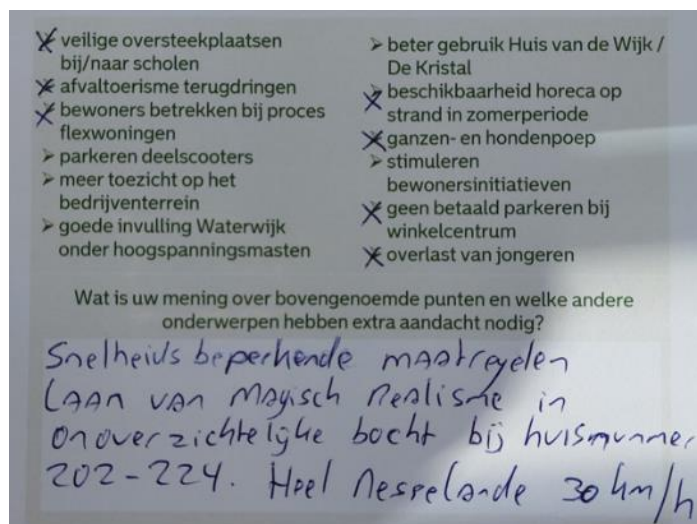 veilige oversteekplaatsen
bij/naar scholen
afvaltoerisme terugdringen
bewoners betrekken bij proces
flexwoningen
➢ parkeren deelscooters
➢ meer toezicht op het
bedrijventerrein
➢ goede invulling Waterwijk
onder hoogspanningsmasten
➢ beter gebruik Huis van de Wijk /
De Kristal
beschikbaarheid horeca op
strand in zomerperiode
ganzen- en hondenpoep
➢ stimuleren
bewonersinitiatieven
geen betaald parkeren bij
winkelcentrum
overlast van jongeren
Wat is uw mening over bovengenoemde punten en welke andere
onderwerpen hebben extra aandacht nodig?
Snelheids beperkende maatregelen
Laan van Magisch Realisme in
onoverzichtelijke bocht bij huisnummer
202-224. Heel Nesselande 30 km/h